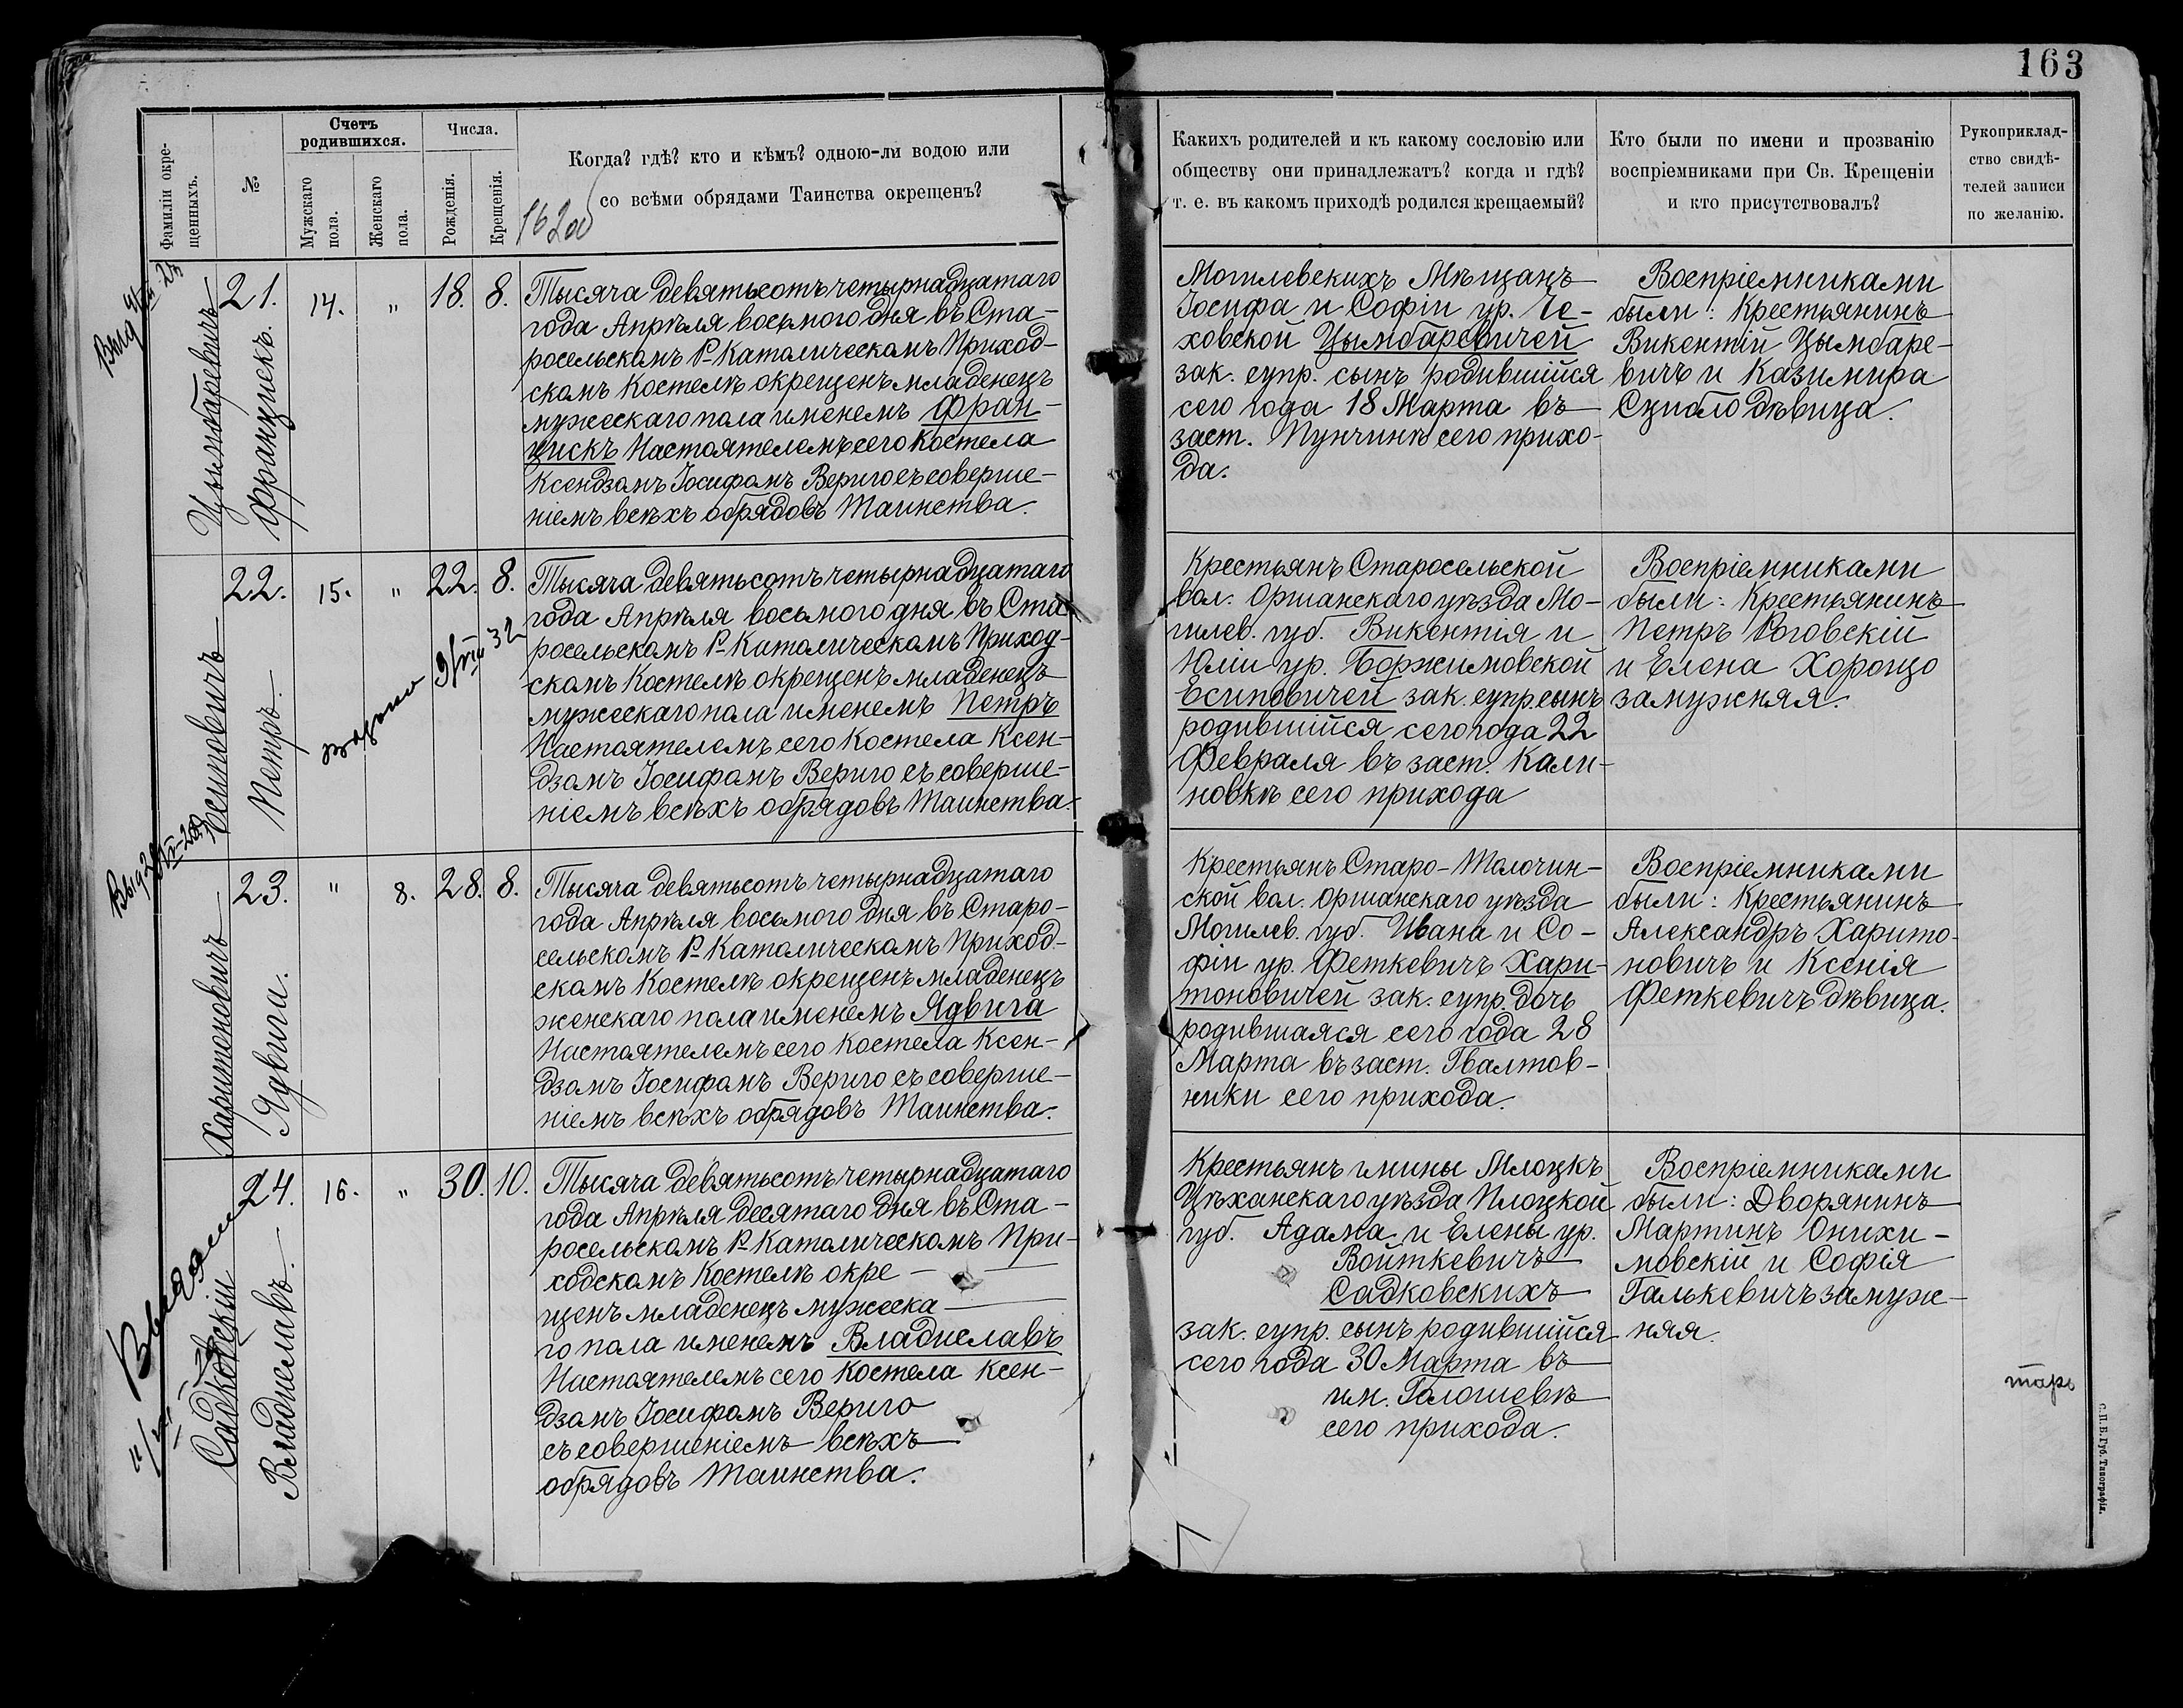 163
Фамиліи окре-
щенныхъ.
№
Счетъ
родившихся.
Мужскаго
пола.
Женскаго
пола.
Числа.
Рожденія.
Крещенія.
Когда? гдѣ? кто и кѣмъ? одною-ли водою или
со всѣми обрядами Таинства окрещенъ?
Какихъ родителей и къ какому сословію или
обществу они принадлежатъ? когда и гдѣ?
т. е. въ какомъ приходѣ родился крещаемый?
Кто были по имени и прозванію
воспріемниками при Св. Крещеніи
и кто присутствовалъ?
Рукоприклад-
ство свидѣ-
телей записи
по желанію.
Цымбаревичъ
Францискъ.
21.
14.
"
18.
8.
Тысяча девятьсотъ четырнадцатаго
года Апрѣля восьмого дня въ Ста-
росельскомъ Р-Католическомъ Приход-
скомъ Костелѣ окрещенъ младенецъ
мужескаго пола именемъ Фран-
цискъ Настоятелемъ сего Костела
Ксендзомъ Іосифомъ Вериго съ соверше-
ніемъ всѣхъ обрядовъ Таинства.
Могилевскихъ Мѣщанъ
Іосифа и Софіи ур. Че-
ховской Цымбаревичей
зак. супр. сынъ родившійся
сего года 18 Марта въ
заст. Пунчинѣ сего прихо-
да.
Воспріемниками
были: Крестьянинъ
Викентій Цымбаре-
вичъ и Казимира
Сцибло дѣвица.
Есиповичъ
Петръ.
22.
15.
"
22.
8.
9/VIII 32
Тысяча девятьсотъ четырнадцатаго
года Апрѣля восьмого дня въ Ста-
росельскомъ Р-Католическомъ Приход-
скомъ Костелѣ окрещенъ младенецъ
мужескаго пола именемъ Петръ
Настоятелемъ сего Костела Ксен-
дзомъ Іосифомъ Вериго съ соверше-
ніемъ всѣхъ обрядовъ Таинства.
Крестьянъ Старосельской
вол. Оршанскаго уѣзда Мо-
гилев. губ. Викентія и
Юліи ур. Боржимовской
Есиповичей зак. супр. сынъ
родившійся сего года 22
Февраля въ заст. Кали-
новкѣ сего прихода
Воспріемниками
были: Крестьянинъ
Петръ Роговскій
и Елена Хорощо
замужняя.
Харитоновичъ
Ядвига.
23.
"
8.
28.
8.
Тысяча девятьсотъ четырнадцатаго
года Апрѣля восьмого дня въ Старо-
сельскомъ Р-Католическомъ Приход-
скомъ Костелѣ окрещенъ младенецъ
женскаго пола именемъ Ядвига
Настоятелемъ сего Костела Ксен-
дзомъ Іосифомъ Вериго съ соверше-
ніемъ всѣхъ обрядовъ Таинства.
Крестьянъ Старо-Толочин-
ской вол. Оршанскаго уѣзда
Могилев. губ. Ивана и Со-
фіи ур. Феткевичъ Хари-
тоновичей зак. супр. дочь
родившаяся сего года 28
Марта въ заст. Гвалтов-
ники сего прихода.
Воспріемниками
были: Крестьянинъ
Александръ Харито-
новичъ и Ксенія
Феткевичъ дѣвица.
Садковскій
Владиславъ.
24.
16.
"
30.
10.
Тысяча девятьсотъ четырнадцатаго
года Апрѣля десятаго дня въ Ста-
росельскомъ Р-Католическомъ При-
ходскомъ Костелѣ окре-
щенъ младенецъ мужеска-
го пола именемъ Владиславъ
Настоятелемъ сего Костела Ксен-
дзомъ Іосифомъ Вериго
съ совершеніемъ всѣхъ
обрядовъ Таинства.
Крестьянъ гмины Млоцкъ
Цѣханскаго уѣзда Плоцкой
губ. Адама и Елены ур.
Войткевичъ
Садковскихъ
зак. супр. сынъ родившійся
сего года 30 Марта въ
им. Голошевкѣ
сего прихода.
Воспріемниками
были: Дворянинъ
Мартинъ Онихи-
мовскій и Софія
Галькевичъ замуж-
няя.
тарь
С.П.Б. Губ. Типографія.